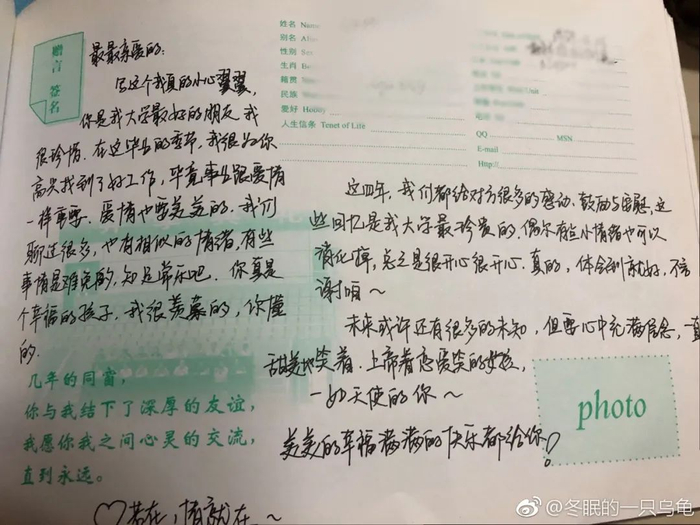 赠言 签名
最最亲爱的：
写这个我真的小心翼翼，
你是我大学最好的朋友，我
很珍惜。在这毕业的季节，我很为你
高兴找到了好工作，毕竟事业跟爱情
一样重要。爱情也要美美的。我们
聊过很多，也有相似的情绪，有些
事情是难免的，知足常乐吧。你真是
个幸福的孩子，我很羡慕的，你懂
的.
几年的同窗，
你与我结下了深厚的友谊，
我愿你我之间心灵的交流，
直到永远。
♡若在，情就在～
姓名 Name
别名
性别 Sex
生肖
籍贯
民族
爱好 Hobby
人生信条 Tenet of Life
QQ MSN
E-mail
Http://
这四年，我们都给对方很多的感动、鼓励与安慰，这
些回忆是我大学最珍贵的，偶尔有些小情绪也可以
消化掉，总之是很开心很开心。真的，体会到就好，不言
谢咱～
未来或许还有很多的未知，但要心中充满信念，一直
甜美地笑着，上帝眷恋爱笑的女孩，
一如天使的你～
美美的幸福满满的快乐都给你！
photo
@冬眠的一只乌龟